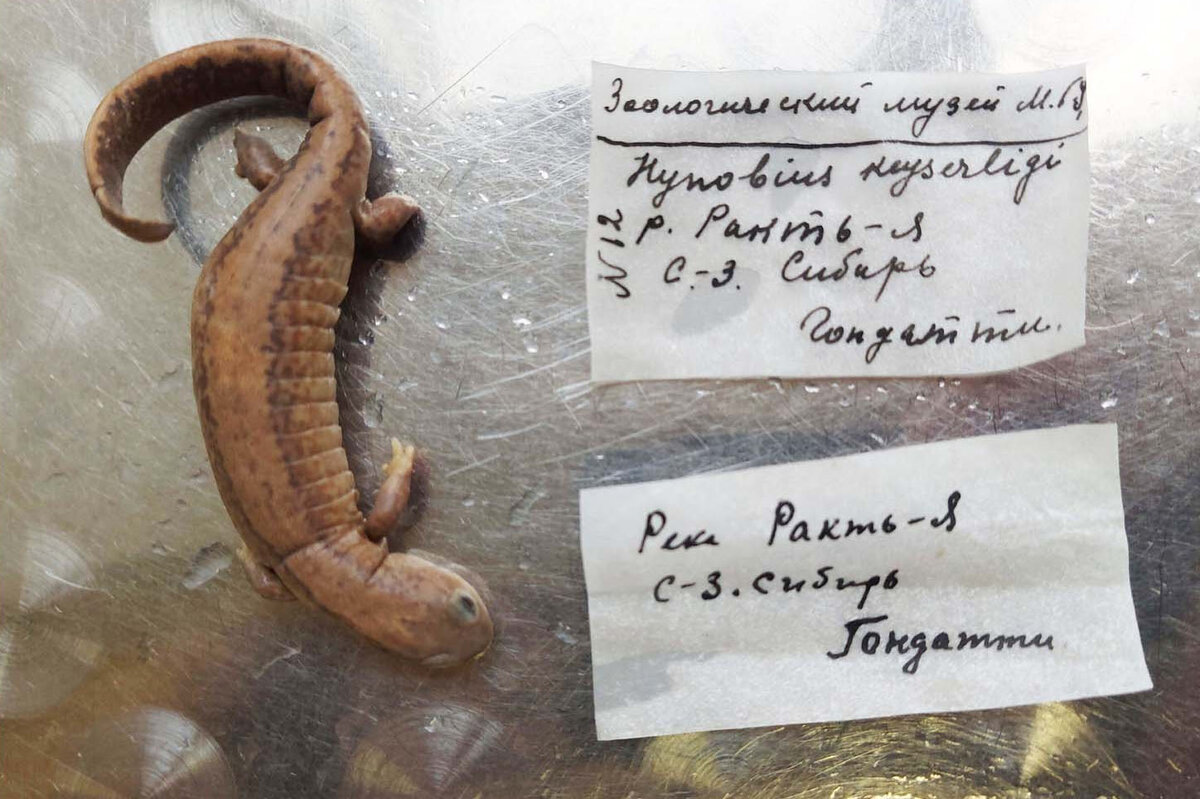 Зоологический музей М.
Hynobius keyserligi
N 12
р. Ракть-Я
С.-З. Сибирь
Гондатти.
Река Ракть-Я
С-З. Сибирь
Гондатти